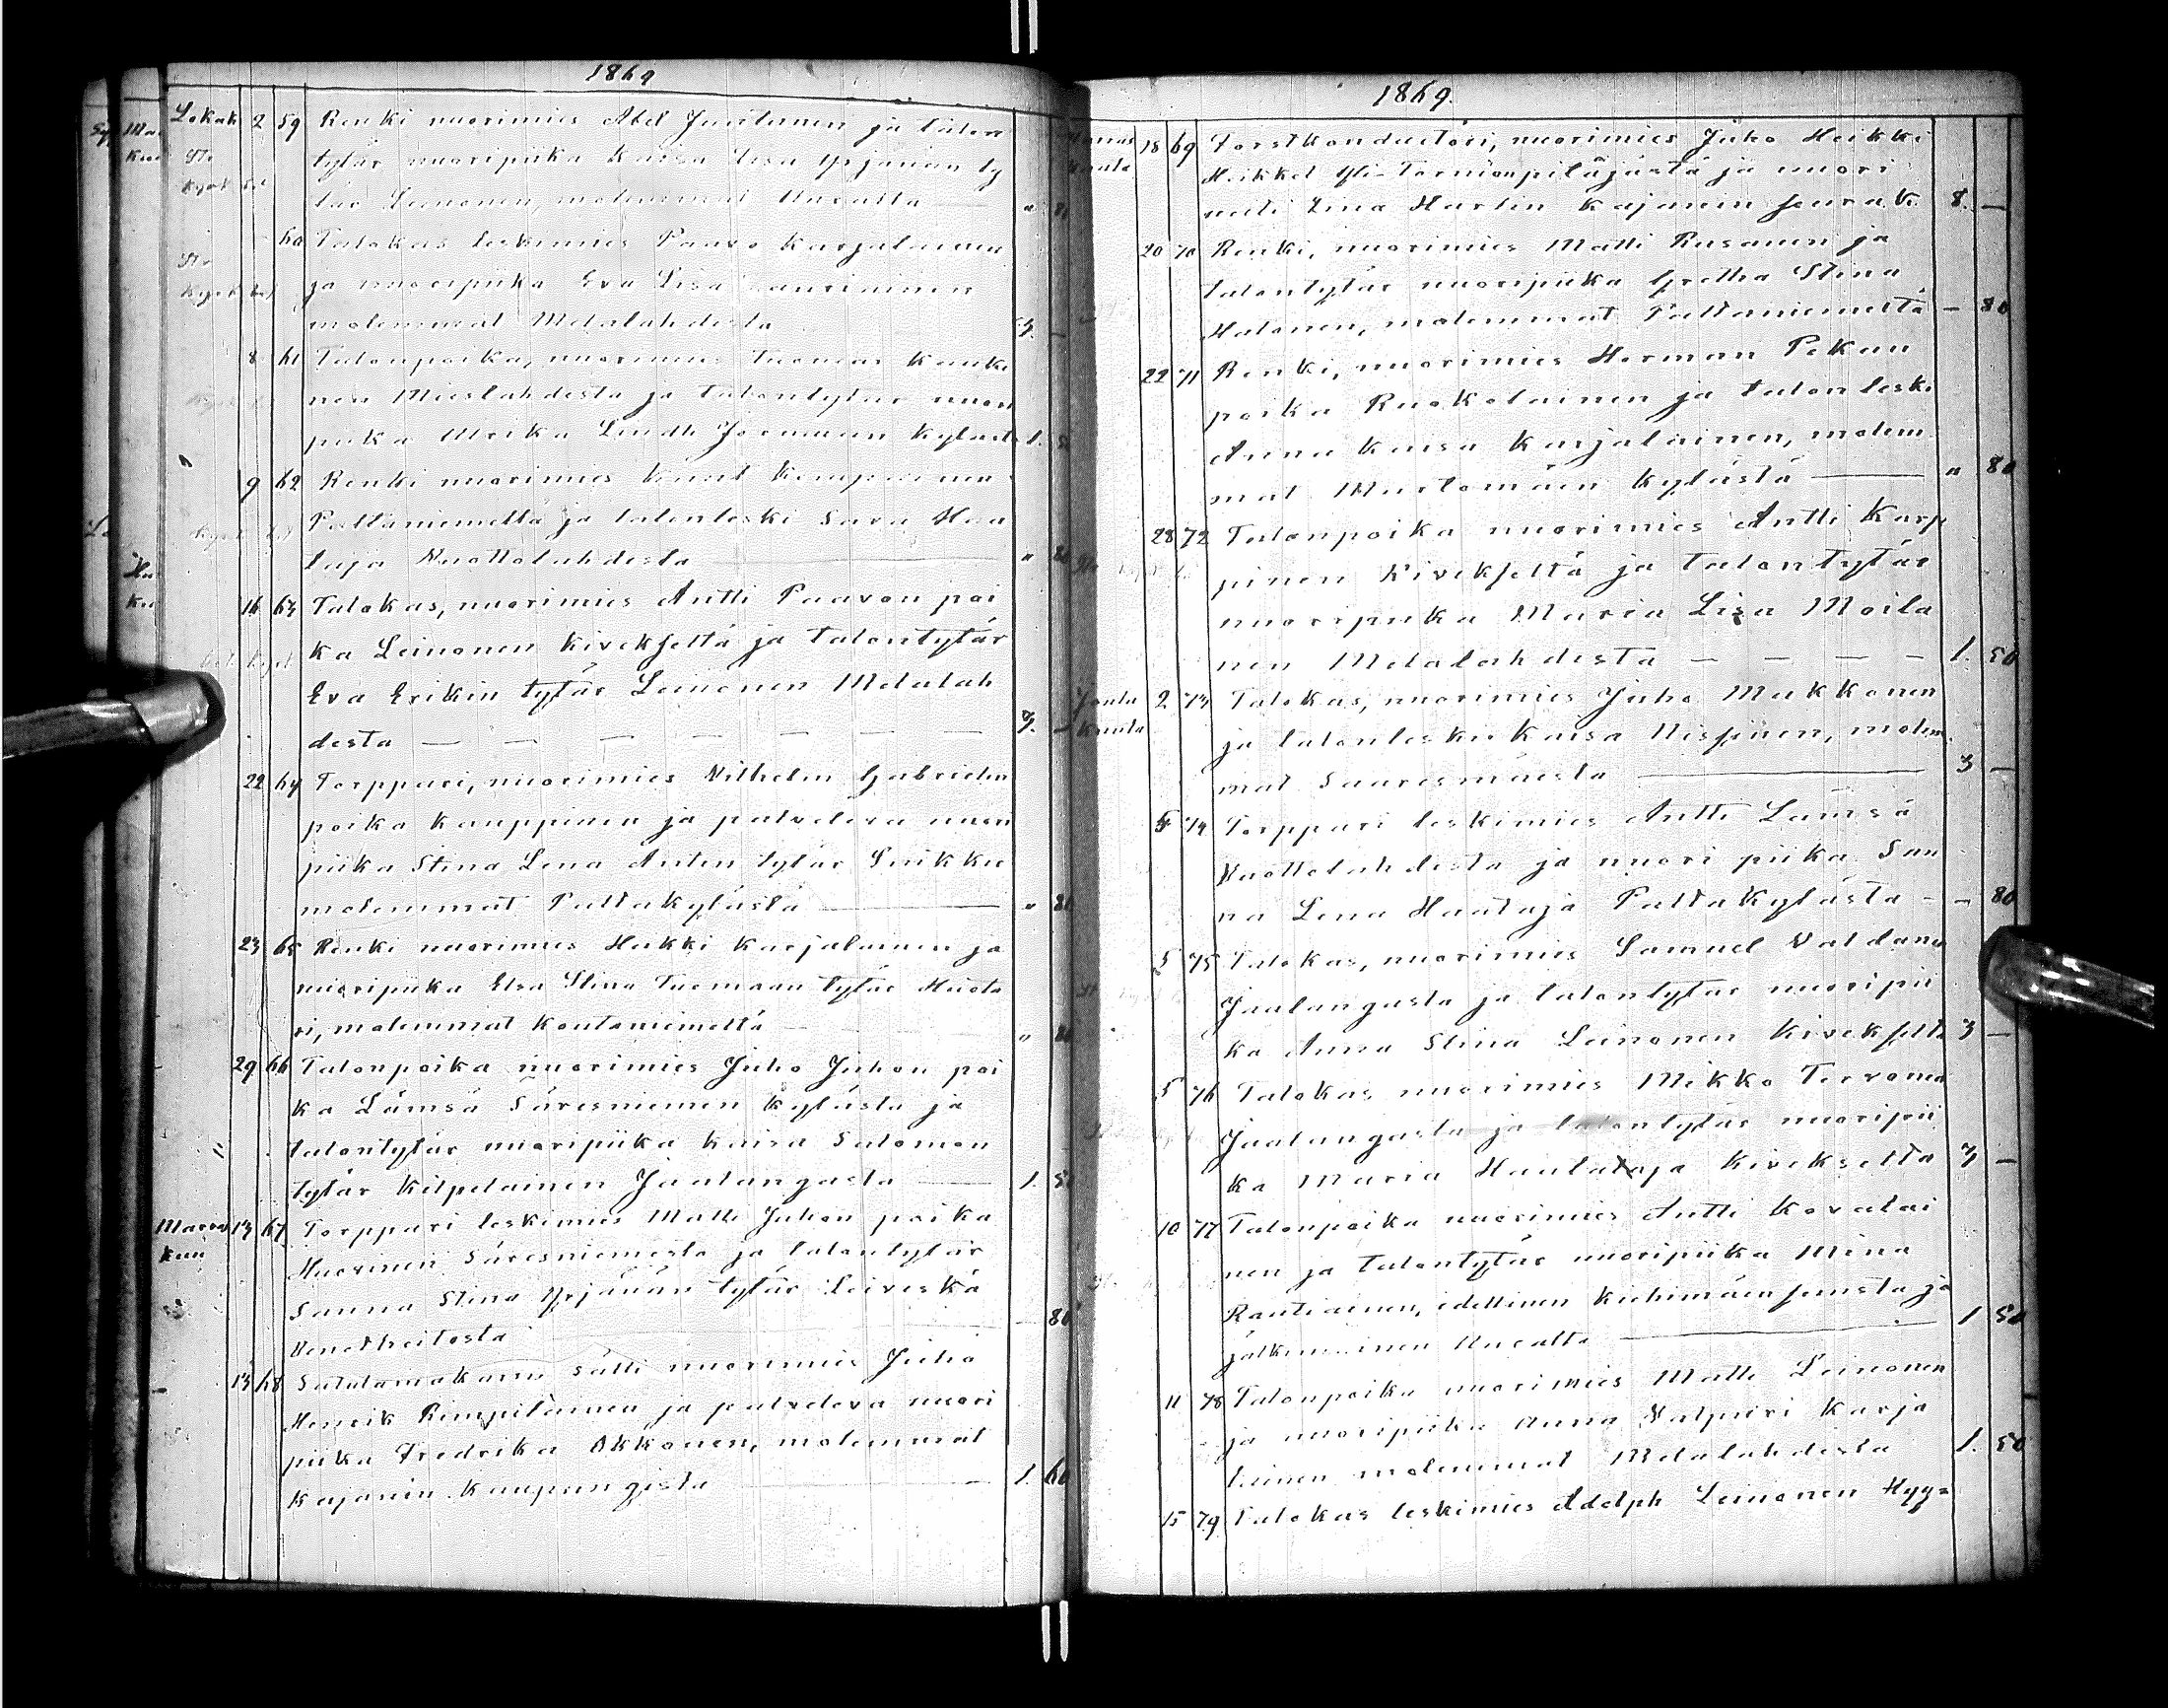 1869
Lokak 2 59 Renki nuorimies Abel Juntunen ja talon
tytär nuoripiika Kaisa Lisa Yrjänän ty
tär Leinonen, molemmat Uuralta
60 Talokas leskimies Paavo Karjalainen
ja nuoripiika Eva Lisa
molemmat Melalahdesta 3. —
8 61 Talonpoika, nuorimies Tuomas
nen Mieslahdesta ja talontytär nuori
piika Ulrika Lindh Jormuan kylästä 1.
9 62 Renki nuorimies
Paltaniemeltä ja talonleski Sara Haa
taja Vuottolahdesta "
16 63 Talokas, nuorimies Antti Paavon poi
ka Leinonen Kivekseltä ja talontytär
Eva Erikin tytär Leinonen Melalah
desta — — — — — — — 3. —
22 64 Torppari, nuorimies Vilhelm Gabrielin
poika Kauppinen ja palveleva nuori
piika Stina Lena Antin tytär
molemmat Paltakylästä — "
23 65 Renki nuorimies Heikki Karjalainen ja
nuoripiika Elsa Stina Tuomaan tytär
ri, molemmat Koutaniemeltä "
29 66 Talonpoika nuorimies Juho Juhon poi
ka Lämsä Säresniemen kylästä ja
talontytär nuoripiika Kaisa Salomon
tytär Kilpeläinen Jaalangasta — 1.
Marras 13 67 Torppari leskimies Matti Juhon poika
kuu Huovinen Säresniemestä ja talontytär
Sanna Stina Yrjänän tytär Leiveskä
Venetheitosta — 80
13 68 Satulamakarin sälli nuorimies Juho
Henrik Rimpiläinen ja palveleva nuori
piika Fredrika Okkonen, molemmat
Kajanin Kaupungista — 1. 60
1869.
Marras 18 69 Forstkonductöri, nuorimies Juho Heikki
kuuta Heikkel Yli-Tornion pitäjästä ja nuori
neiti Lina Harlin Kajanin seurak. 8. —
20 70 Renki, nuorimies Matti Rusanen ja
talontytär nuoripiika Gretha Stina
Halonen, molemmat Paltaniemeltä — 80
22 71 Renki, nuorimies Herman Pekan
poika Ruokolainen ja talonleski
Anna Kaisa Karjalainen, molem
mat Murtomäen kylästä — " 80
28 72 Talonpoika nuorimies Antti Karp
pinen Kivekseltä ja talontytär
nuoripiika Maria Lisa Moila
nen Melalahdesta — — — — 1. 50
Joulu 2 73 Talokas, nuorimies Juho Mukkonen
kuuta ja talonleski Kaisa Nissinen, molem
mat Saaresmäestä — 3 —
5 74 Torppari leskimies Antti Lämsä
Vuottolahdesta ja nuori piika San
na Lena Haataja Paltakylästä — — 80
5 75 Talokas, nuorimies Samuel Valdanen
Jaalangasta ja talontytär nuoripii
ka Anna Stina Leinonen Kivekseltä 3 —
5 76 Talokas nuorimies Mikko Tervonen
Jaalangasta ja talontytär nuoripii
ka Maria Haataja Kivekseltä 3 —
10 77 Talonpoika nuorimies Antti Kovalai
nen ja talontytär nuoripiika Mina
Rautiainen, edellinen Kiehimäensuusta ja
jälkimäinen Uuralta — 1 50
11 78 Talonpoika nuorimies Matti Leinonen
ja nuoripiika Anna Valpuri Karja
lainen molemmat Melalahdesta 1. 50
15 79 Talokas leskimies Adolph Leinonen Hyy=